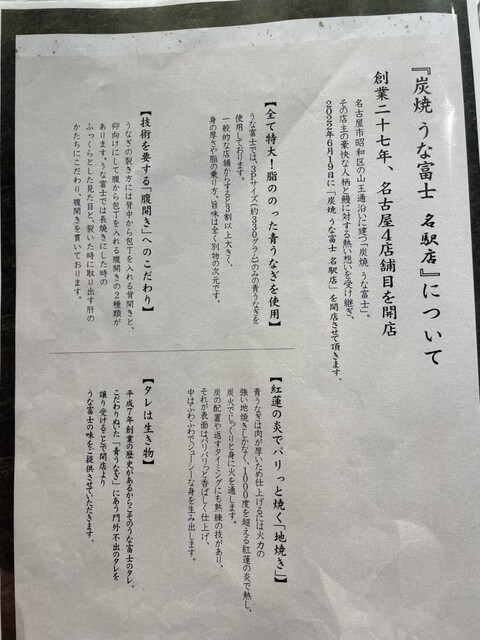 『炭焼 うな富士 名駅店』について
創業二十七年、名古屋4店舗目を開店
名古屋市昭和区の山王通沿いに建つ「炭焼 うな富士」。
その店主の豪快な人柄と鰻に対する熱い想いを受け継ぎ、
2022年6月19日に「炭焼 うな富士 名駅店」を開店させて頂きます。
【全て特大！脂ののった青うなぎを使用】
うな富士では、3Pサイズ（約330グラム）のみの青うなぎを
使用しております。
一般的な店舗からすると3割以上大きく、
身の厚さや脂の乗り方、旨味は全く別物の次元です。
【技術を要する「腹開き」へのこだわり】
うなぎの裂き方には背中から包丁を入れる背開きと、
仰向けにして腹から包丁を入れる腹開きの2種類が
あります。うな富士では長焼きにした時の
ふっくらとした見た目と、裂いた時に取り出す肝の
かたちにこだわり、腹開きを貫いております。
【紅蓮の炎でパリっと焼く「地焼き」】
青うなぎは肉が厚いため仕上げるには火力の
強い地焼きしかなく、1000度を超える紅蓮の炎で熱し、
炭火でじっくりと身に火を通します。
炭の配置や返すタイミングにも熟練の技があり、
それが表面はパリパリっと香ばしく仕上げ、
中はふわふわでジューシーな身を生み出します。
【タレは生き物】
平成7年創業の歴史があるからこそのうな富士のタレ。
こだわりぬいた「青うなぎ」にあう門外不出のタレを
譲り受けることで開店より
うな富士の味をご提供させていただきます。